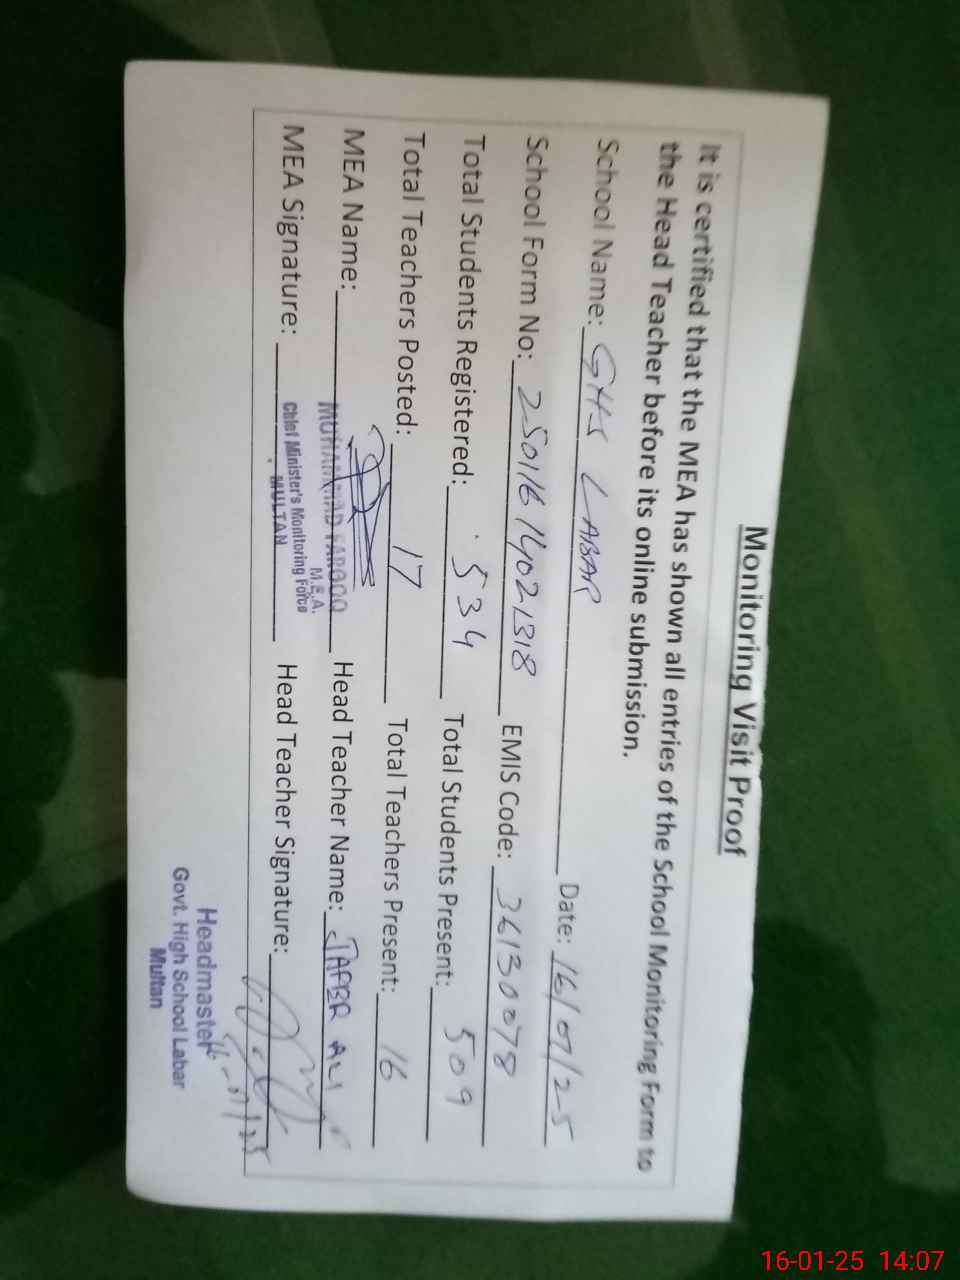 Monitoring Visit Proof
It is certified that the MEA has shown all entries of the School Monitoring Form to
the Head Teacher before its online submission.
School Name: GHS LABAR Date: 16/01/25
School Form No: 250116 1402 1318 EMIS Code: 36130078
Total Students Registered: 534 Total Students Present: 509
Total Teachers Posted: 17 Total Teachers Present: 16
MEA Name: MUHAMMAD FAROOQ Head Teacher Name: JAFAR ALI
M.E.A.
Chief Minister's Monitoring Force
MEA Signature: MULTAN Head Teacher Signature:
Headmaster
Govt. High School Labar
Multan
16-01-25 14:07